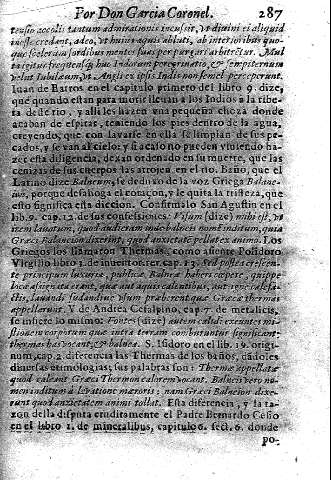 Por Don Garcia Coronel. 287
tensio accolis tantum admirationis incusit, ut diuini ei aliquid
inesse credant, adeo, ut huius aquis abluti, ab interioribus quo-
que scelerum sordibus mentes suas perpurgari arbitretur. Mul
ta igitur frequensq; huc Indorum peregrinatio, & sempiternum
velut Iubileum, ut Angli ex ipsis Indis non semel perceperunt.
Iuan de Barros en el capitulo primero del libro 9. dize,
que quando estàn para morir lleuan a los Indios a la ribe-
ra deste rio, y alli les hazen vna pequeña choza donde
acaban de espirar, teniendo los pies dentro de la agua,
creyendo, que con lavarse en ella se limpian de sus pe-
cados, y se van al cielo; y si acaso no pueden viuiendo ha-
zer esta diligencia, dexan ordenado en su muerte, que las
cenizas de sus cuerpos las arrojen en el rio. Baño, que el
Latino dize Balneum, se deduxo de la voz Griega Balane-
ino, porque desahoga el coraçon, y le quita la tristeza, que
esto significa esta diccion. Confirmalo San Agustin en el
lib. 9. cap. 12. de sus confessiones. Visum (dize) mihi est, ut
irem lauatum, quod audieram inde balneis nomē inditum, quia
Græci Balaneion dixerint, quod anxietatē pellat ex animo. Los
Griegos los llamaron Thermas, como assiente Polidoro
Virgilio libro 3. de inuent. rer. cap. 13. Sed postea crescen-
te principum luxuria, publica Balnea haberi cœpere, quippe
loca assignata erant, quæ aut aquis calentibus, aut igne calefa-
ctis, lauandi sudandiue usum præberent quæ Græci thermas
appellarunt. Y de Andrea Cesalpino, cap. 7. de metalicis,
se infiere lo mismo. Fontes (dize) autem calidi erumpentes mi-
thermas has vocant, & balnea. S. Isidoro en el lib. 19. origi-
num, cap. 2. diferencia las Thermas de los baños, dandoles
diuersas etimologias; sus palabras son: Thermæ appellatæ
quod caleant Græci Thermon calorem vocant. Balneis vero no-
men inditum à leuatione mœroris; nam Græci Balneion dixe-
runt quod anxietatem animi tollat. Esta diferencia, y la ra-
zon della disputa eruditamente el Padre Bernardo Cesio
en el libro 1. de mineralibus, capitulo 6. sect. 6. donde
po-